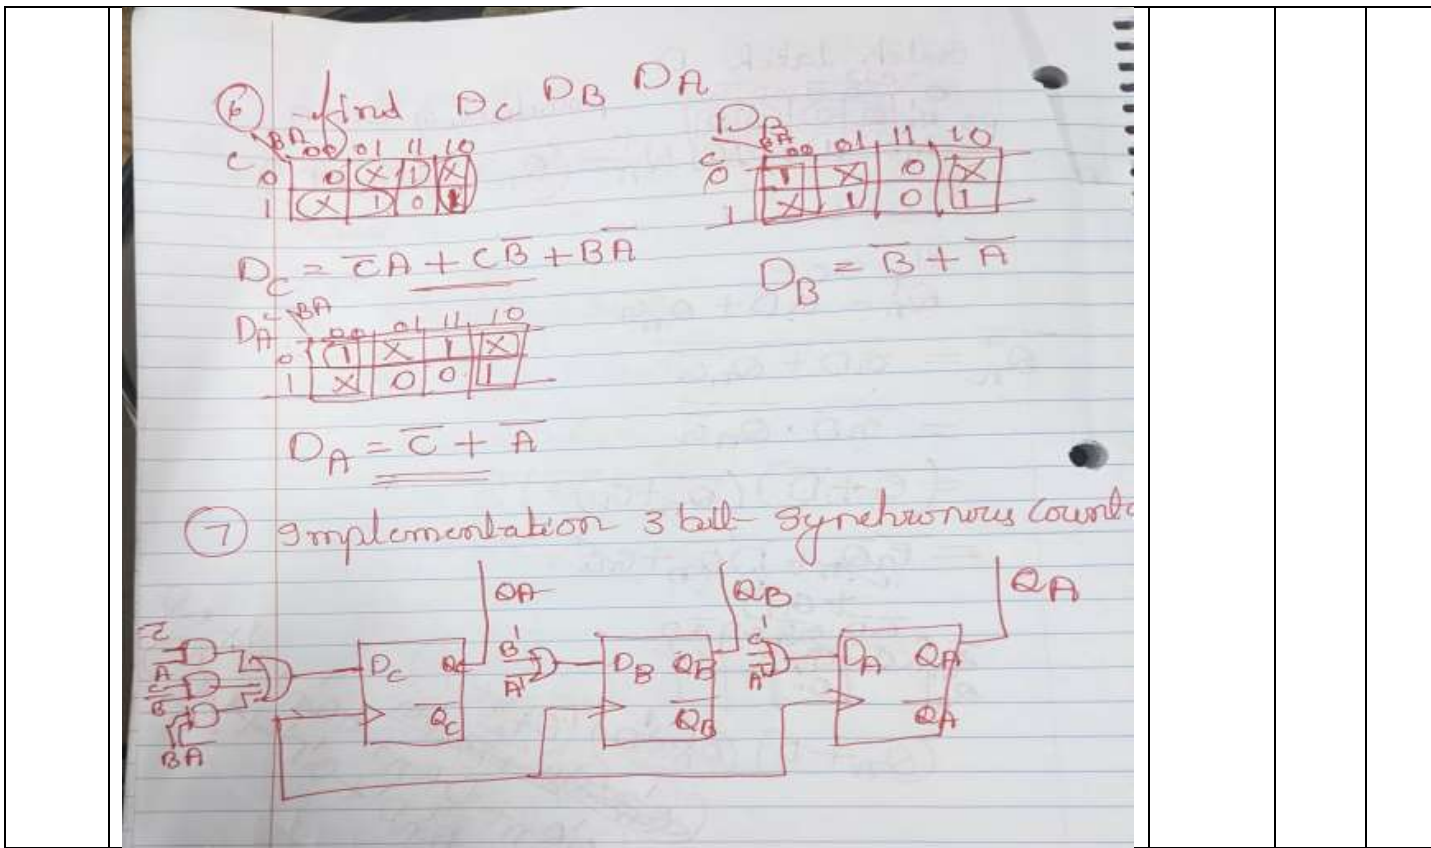 6 find DC DB DA
BA 00 01 11 10
C
0 0 X 1 X
1 X 1 0 1
DB
BA 00 01 11 10
C
0 1 X 0 X
1 X 1 0 1
D̅C = C̅A + CB̅ + BA̅
DB = B̅ + A̅
DA C BA 00 01 11 10
0 1 X 1 X
1 X 0 0 1
DA = C̅ + A̅
7 Implementation 3 bit synchronous Counte
QA QB QA
C̅ A C B̅ BA
DC QC Q̅C
B' A'
DB QB Q̅B
C' A'
DA QA Q̅A